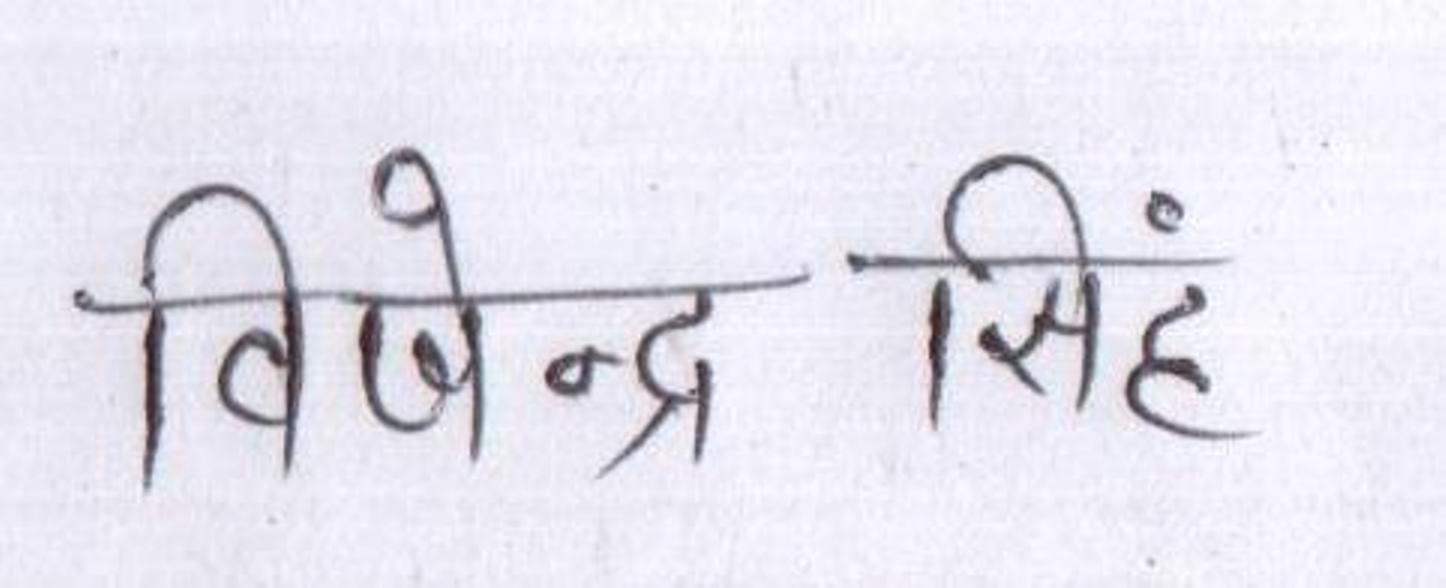 विजेन्द्र सिंह